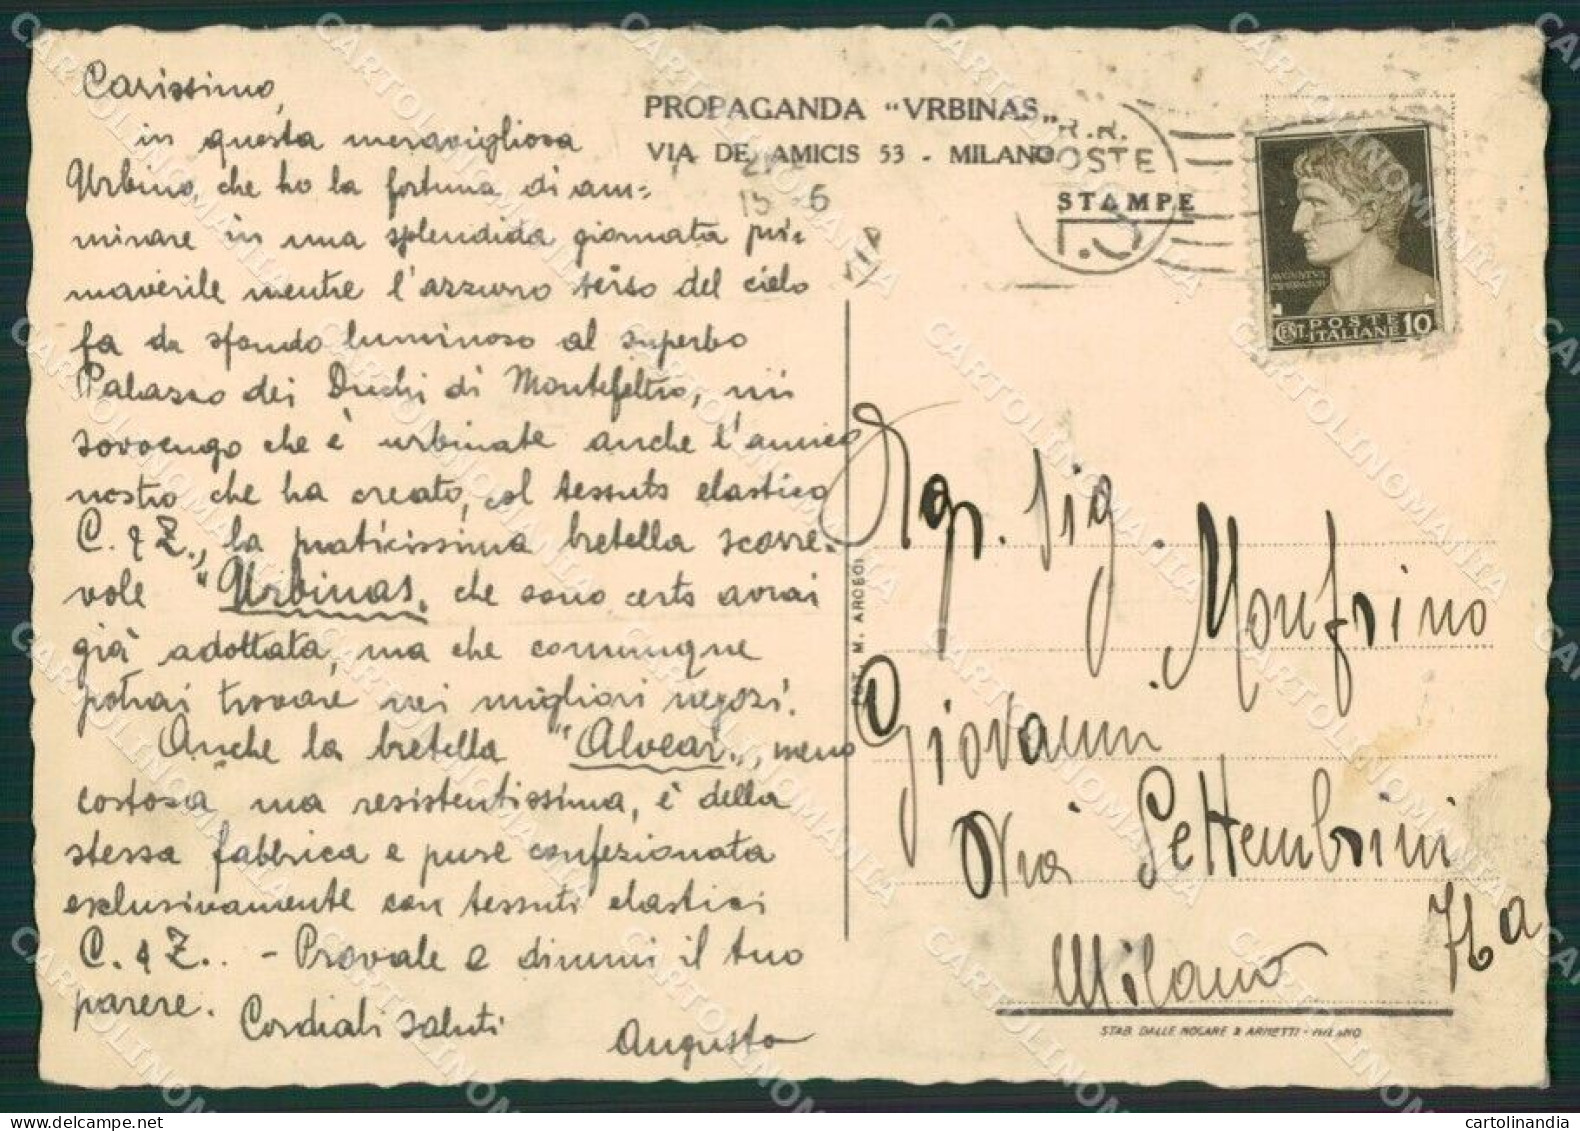 Carissimo,
in questa meravigliosa
Urbino che ho la fortuna di am=
mirare in una splendida giornata pri=
maverile mentre l'azzurro terso del cielo
fa da sfondo luminoso al superbo
Palazzo dei Duchi di Montefeltro, mi
sovvengo che è urbinate anche l'amico
nostro che ha creato, col tessuto elastico
C. & Z., la praticissima bretella scorre-
vole "Urbinas" che sono certo avrai
già adottata, ma che comunque
potrai trovare nei migliori negozi.
Anche la bretella "Alvear", meno
costosa ma resistentissima, è della
stessa fabbrica e pure confezionata
esclusivamente con tessuti elastici
C. & Z.. - Provale e dimmi il tuo
parere.
Cordiali saluti
Augusto
PROPAGANDA "VRBINAS"
VIA DE AMICIS 53 - MILANO
STAMPE
R.R.
POSTE
15 6
AVGVSTVS
POSTE
ITALIANE
CEST. 10
M. AROSOI
Egr. Sig.
Monfrino
Giovanni
Via Settembrini
7
Milano
STAB. DALLE NOGARE & ARMETTI - MILANO
CARTOLINOMANIA
cartolinandia